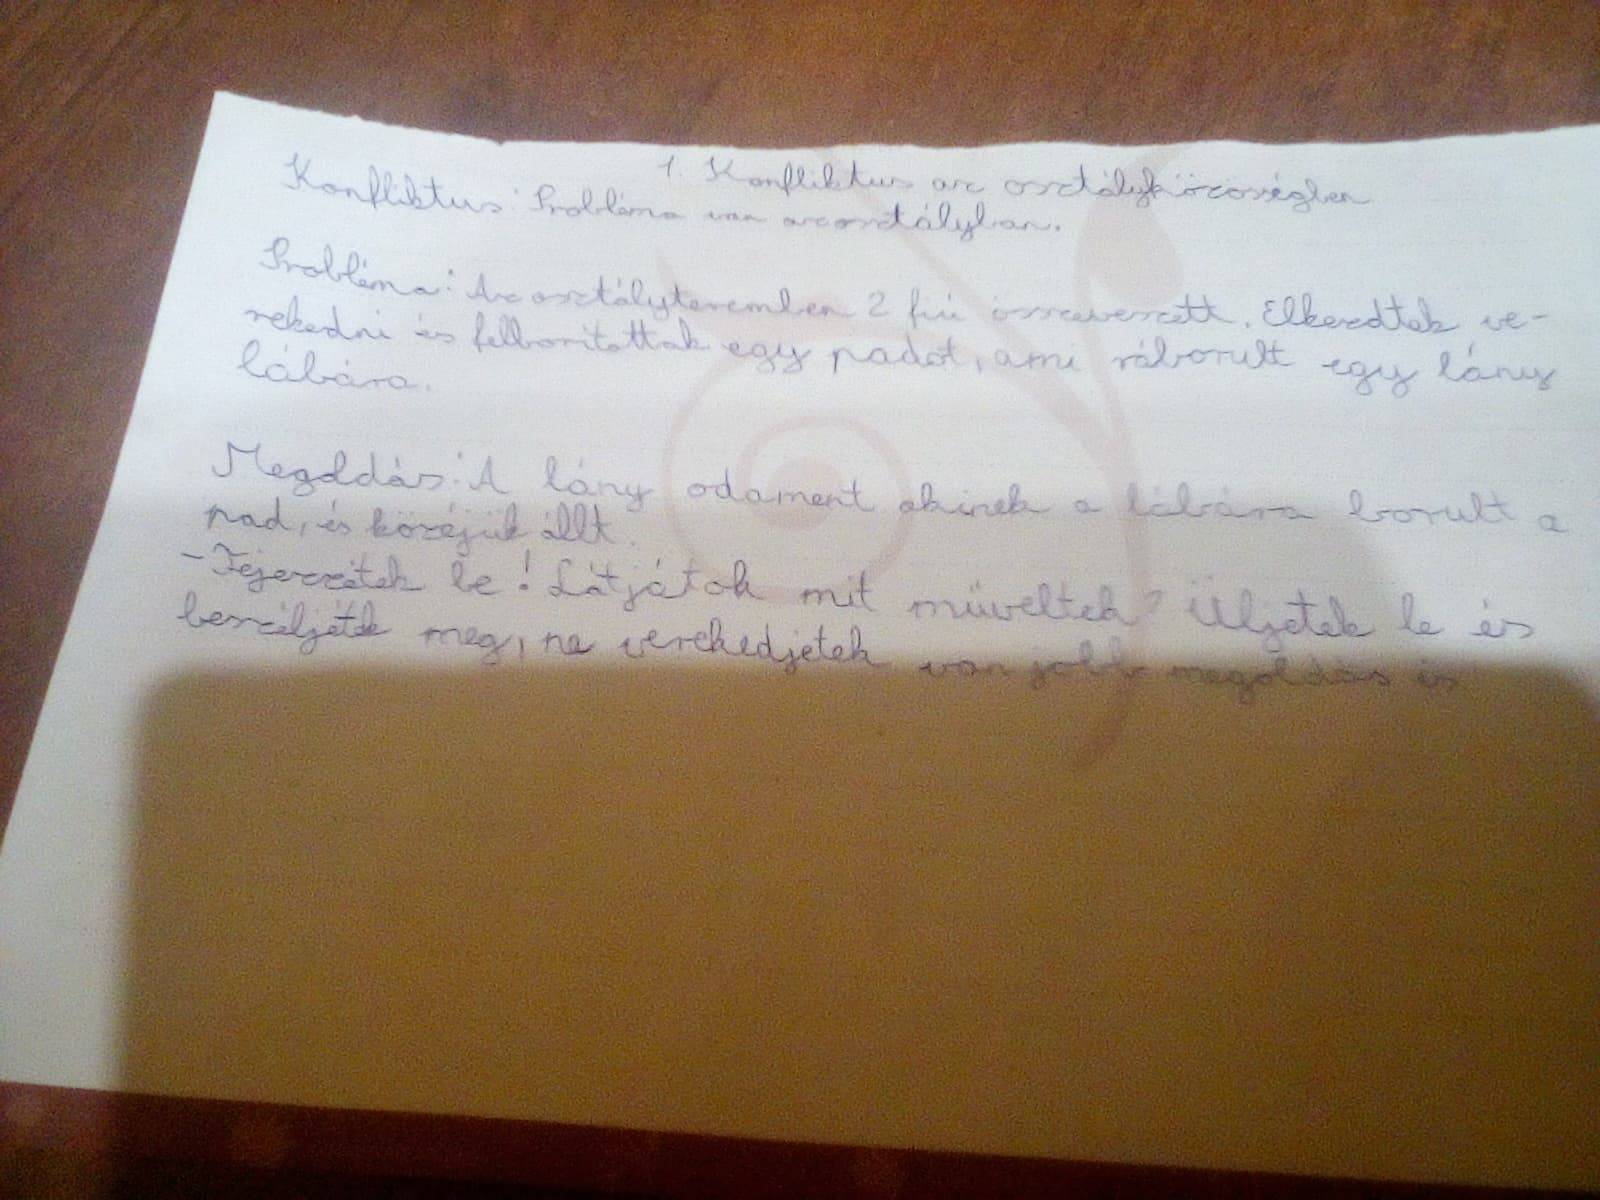 1. Konfliktus az osztályközösségben
Konfliktus: Probléma van azosztályban.
Probléma: Az osztályteremben 2 fiú összeveszett. Elkezdtek ve-
rekedni és felborítottak egy padot, ami ráborult egy lány
lábára.
Megoldás: A lány odament akinek a lábára borult a
pad, és közéjük állt.
- Fejezzétek be! Látjátok mit műveltek? Üljetek le és
beszéljétek meg, ne verekedjetek van jobb megoldás is